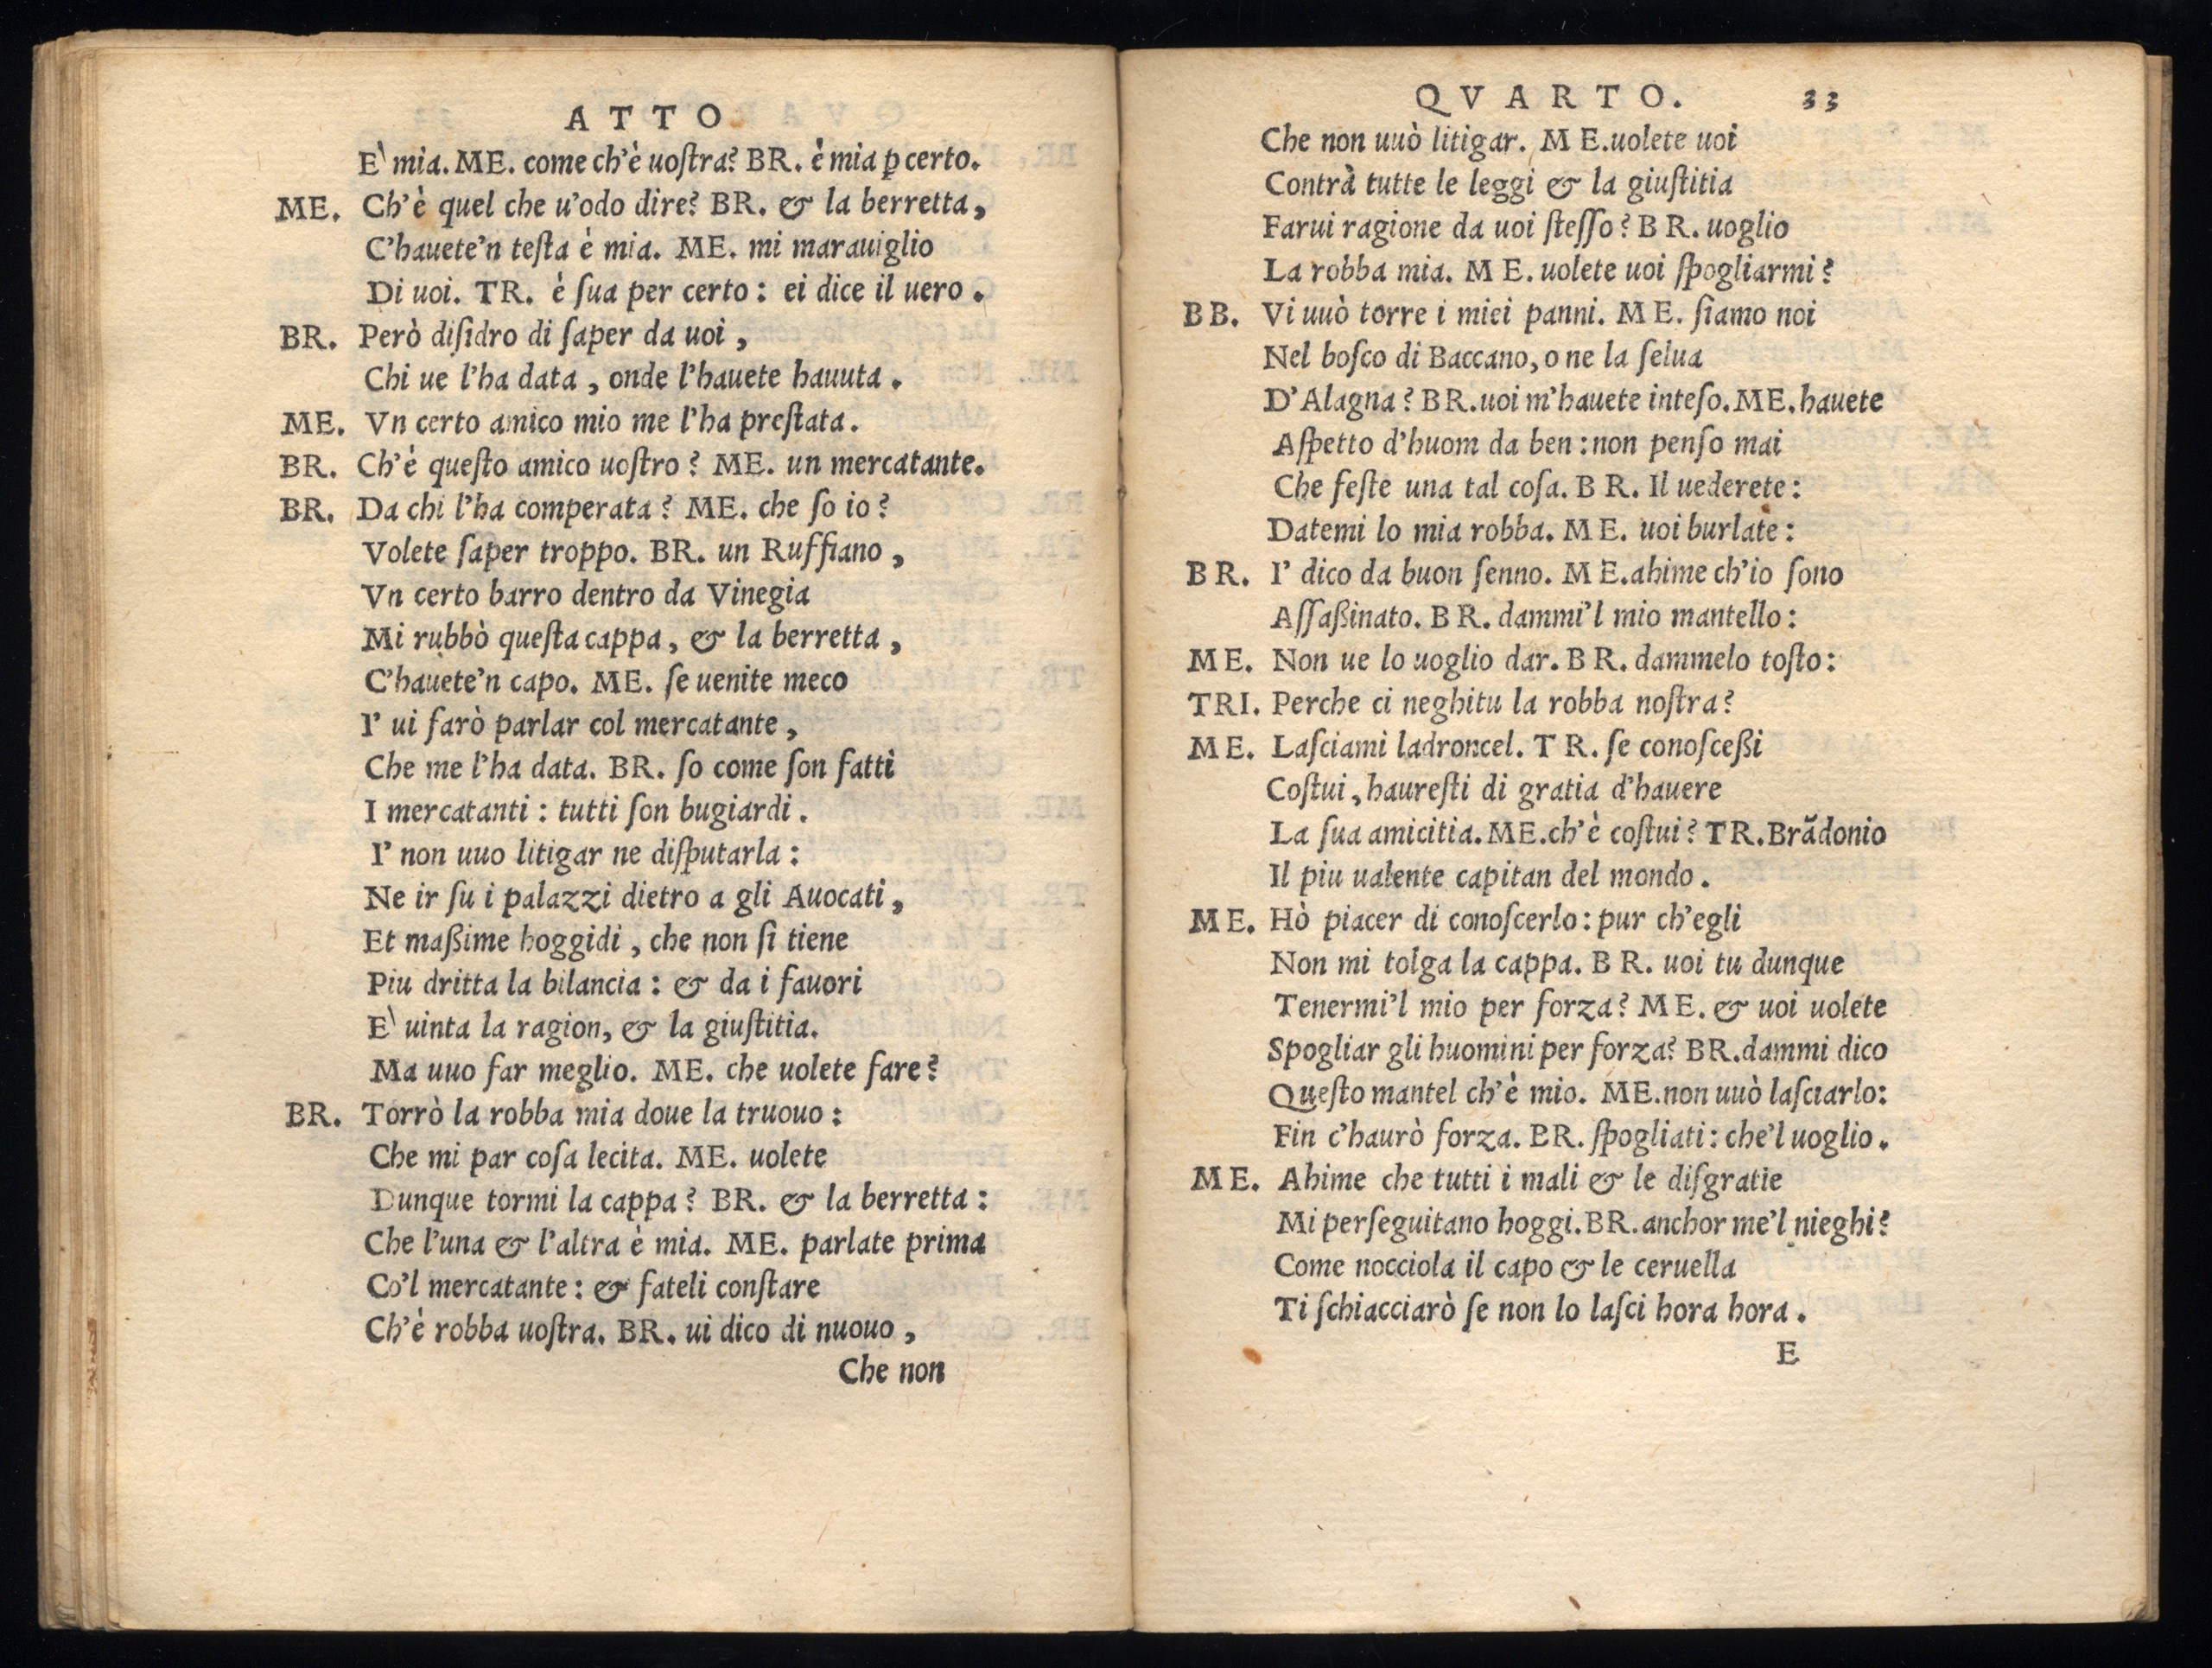 ATTO
E` mia. ME. come ch'è uoſtra? BR. è mia ꝑ certo.
ME. Ch'è quel che u'odo dire? BR. & la berretta,
C'hauete'n teſta è mia. ME. mi marauiglio
Di uoi. TR. è ſua per certo: ei dice il uero.
BR. Però diſidro di ſaper da uoi,
Chi ue l'ha data, onde l'hauete hauuta.
ME. Vn certo amico mio me l'ha preſtata.
BR. Ch'è queſto amico uoſtro? ME. un mercatante.
BR. Da chi l'ha comperata? ME. che ſo io?
Volete ſaper troppo. BR. un Ruffiano,
Vn certo barro dentro da Vinegia
Mi rubbò queſta cappa, & la berretta,
C'hauete'n capo. ME. ſe uenite meco
I' ui farò parlar col mercatante,
Che me l'ha data. BR. ſo come ſon fatti
I mercatanti: tutti ſon bugiardi.
I' non uuo litigar ne diſputarla:
Ne ir ſu i palazzi dietro a gli Auocati,
Et maßime hoggidi, che non ſi tiene
Piu dritta la bilancia: & da i fauori
E` uinta la ragion, & la giuſtitia.
Ma uuo far meglio. ME. che uolete fare?
BR. Torrò la robba mia doue la truouo:
Che mi par coſa lecita. ME. uolete
Dunque tormi la cappa? BR. & la berretta:
Che l'una & l'altra è mia. ME. parlate prima
Co'l mercatante: & fateli conſtare
Ch'è robba uoſtra. BR. ui dico di nuouo,
Che non
QVARTO. 33
Che non uuò litigar. ME. uolete uoi
Contrà tutte le leggi & la giuſtitia
Farui ragione da uoi ſteſſo? BR. uoglio
La robba mia. ME. uolete uoi ſpogliarmi?
BB. Vi uuò torre i miei panni. ME. ſiamo noi
Nel boſco di Baccano, o ne la ſelua
D'Alagna? BR. uoi m'hauete inteſo. ME. hauete
Aſpetto d'huom da ben: non penſo mai
Che feſte una tal coſa. BR. Il uederete:
Datemi lo mia robba. ME. uoi burlate:
BR. I' dico da buon ſenno. ME. ahime ch'io ſono
Aſſaßinato. BR. dammi'l mio mantello:
ME. Non ue lo uoglio dar. BR. dammelo toſto:
TRI. Perche ci neghitu la robba noſtra?
ME. Laſciami ladroncel. TR. ſe conoſceßi
Coſtui, haureſti di gratia d'hauere
La ſua amicitia. ME. ch'è coſtui? TR. Brãdonio
Il piu ualente capitan del mondo.
ME. Hò piacer di conoſcerlo: pur ch'egli
Non mi tolga la cappa. BR. uoi tu dunque
Tenermi'l mio per forza? ME. & uoi uolete
Spogliar gli huomini per forza? BR. dammi dico
Queſto mantel ch'è mio. ME. non uuò laſciarlo:
Fin c'haurò forza. BR. ſpogliati: che'l uoglio.
ME. Ahime che tutti i mali & le diſgratie
Mi perſeguitano hoggi. BR. anchor me'l nieghi?
Come nocciola il capo & le ceruella
Ti ſchiacciarò ſe non lo laſci hora hora.
E